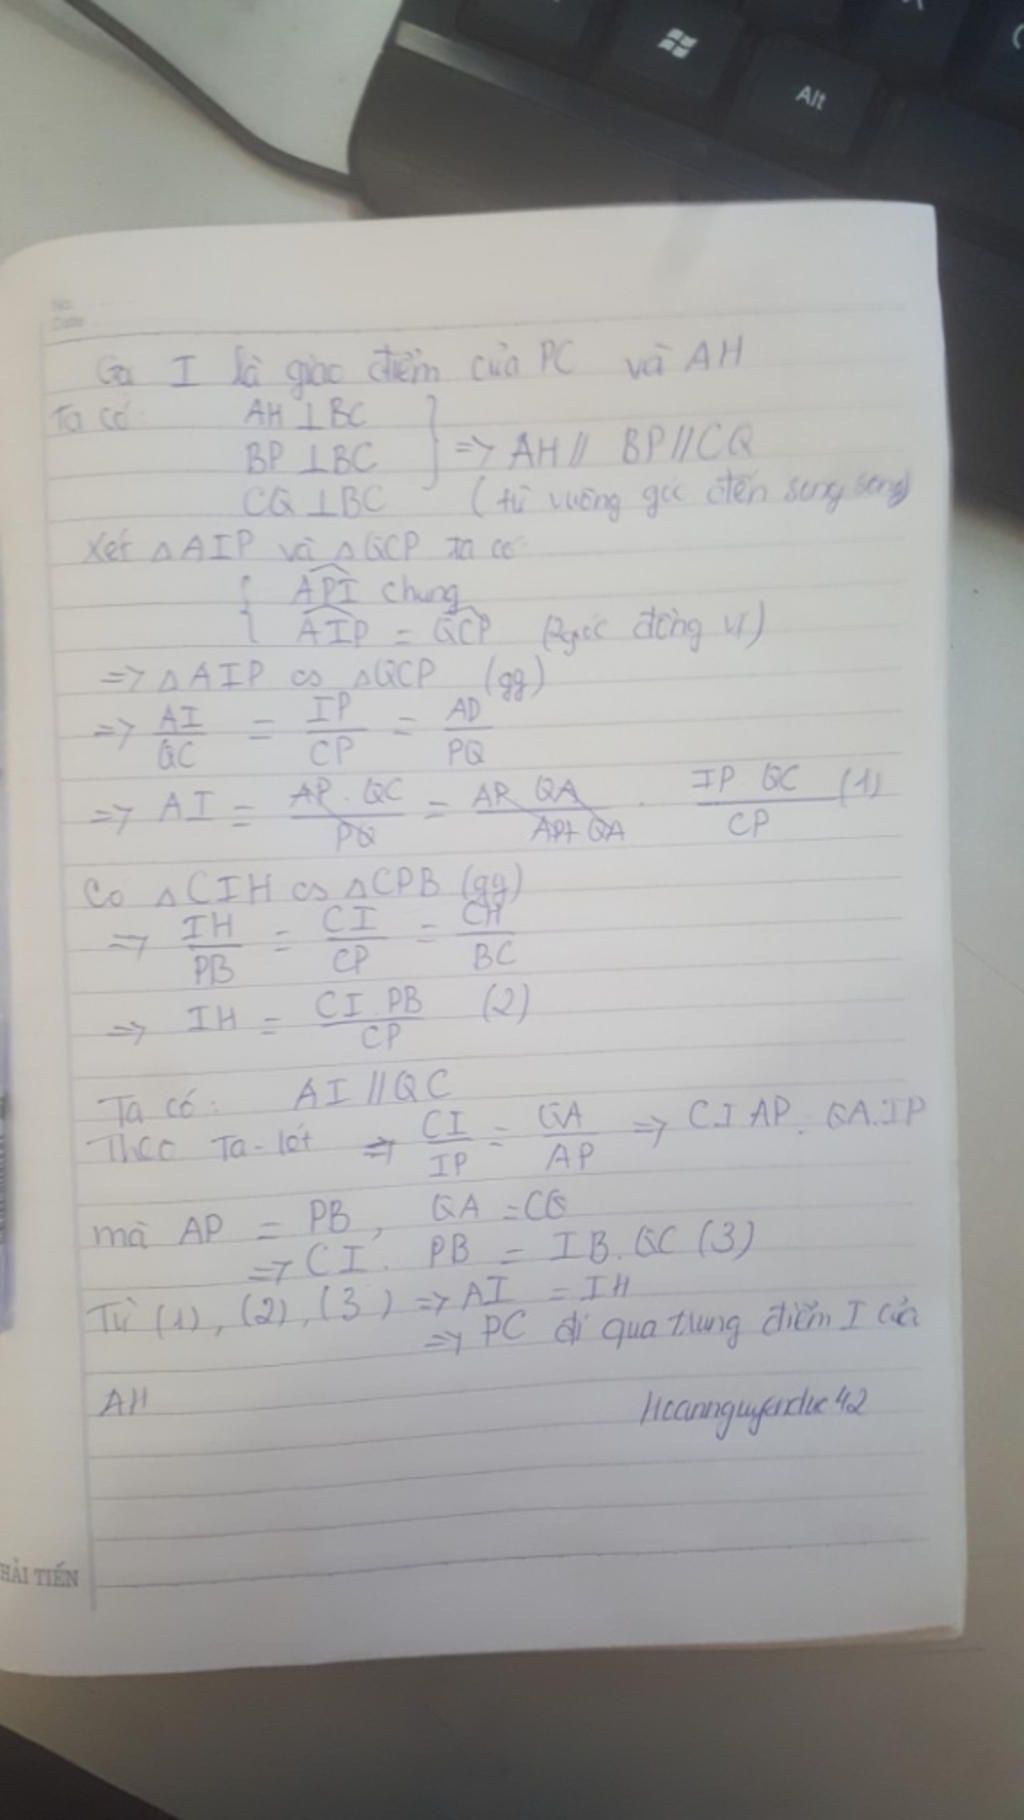 Alt
No.
Date
Gọi I là giao điểm của PC và AH
Ta có: AH ⊥ BC
BP ⊥ BC } => AH // BP // CQ
CQ ⊥ BC (từ vuông góc đến song song)
Xét △AIP và △QCP ta có
{ API chung
AIP = QCP (2 góc đồng vị)
=> △AIP ∽ △QCP (gg)
=> AI/QC = IP/CP = AD/PQ
=> AI = AP . QC / PQ = AP QA / AP + QA . IP . QC / CP (1)
Có △CIH ∽ △CPB (gg)
=> IH/PB = CI/CP = CH/BC
=> IH = CI . PB / CP (2)
Ta có: AI // QC
Theo Ta-lét => CI/IP = QA/AP => CI AP = QA.IP
mà AP = PB, QA = CQ
=> CI . PB = IB . QC (3)
Từ (1), (2), (3) => AI = IH
=> PC đi qua trung điểm I của
AH
HẢI TIẾN